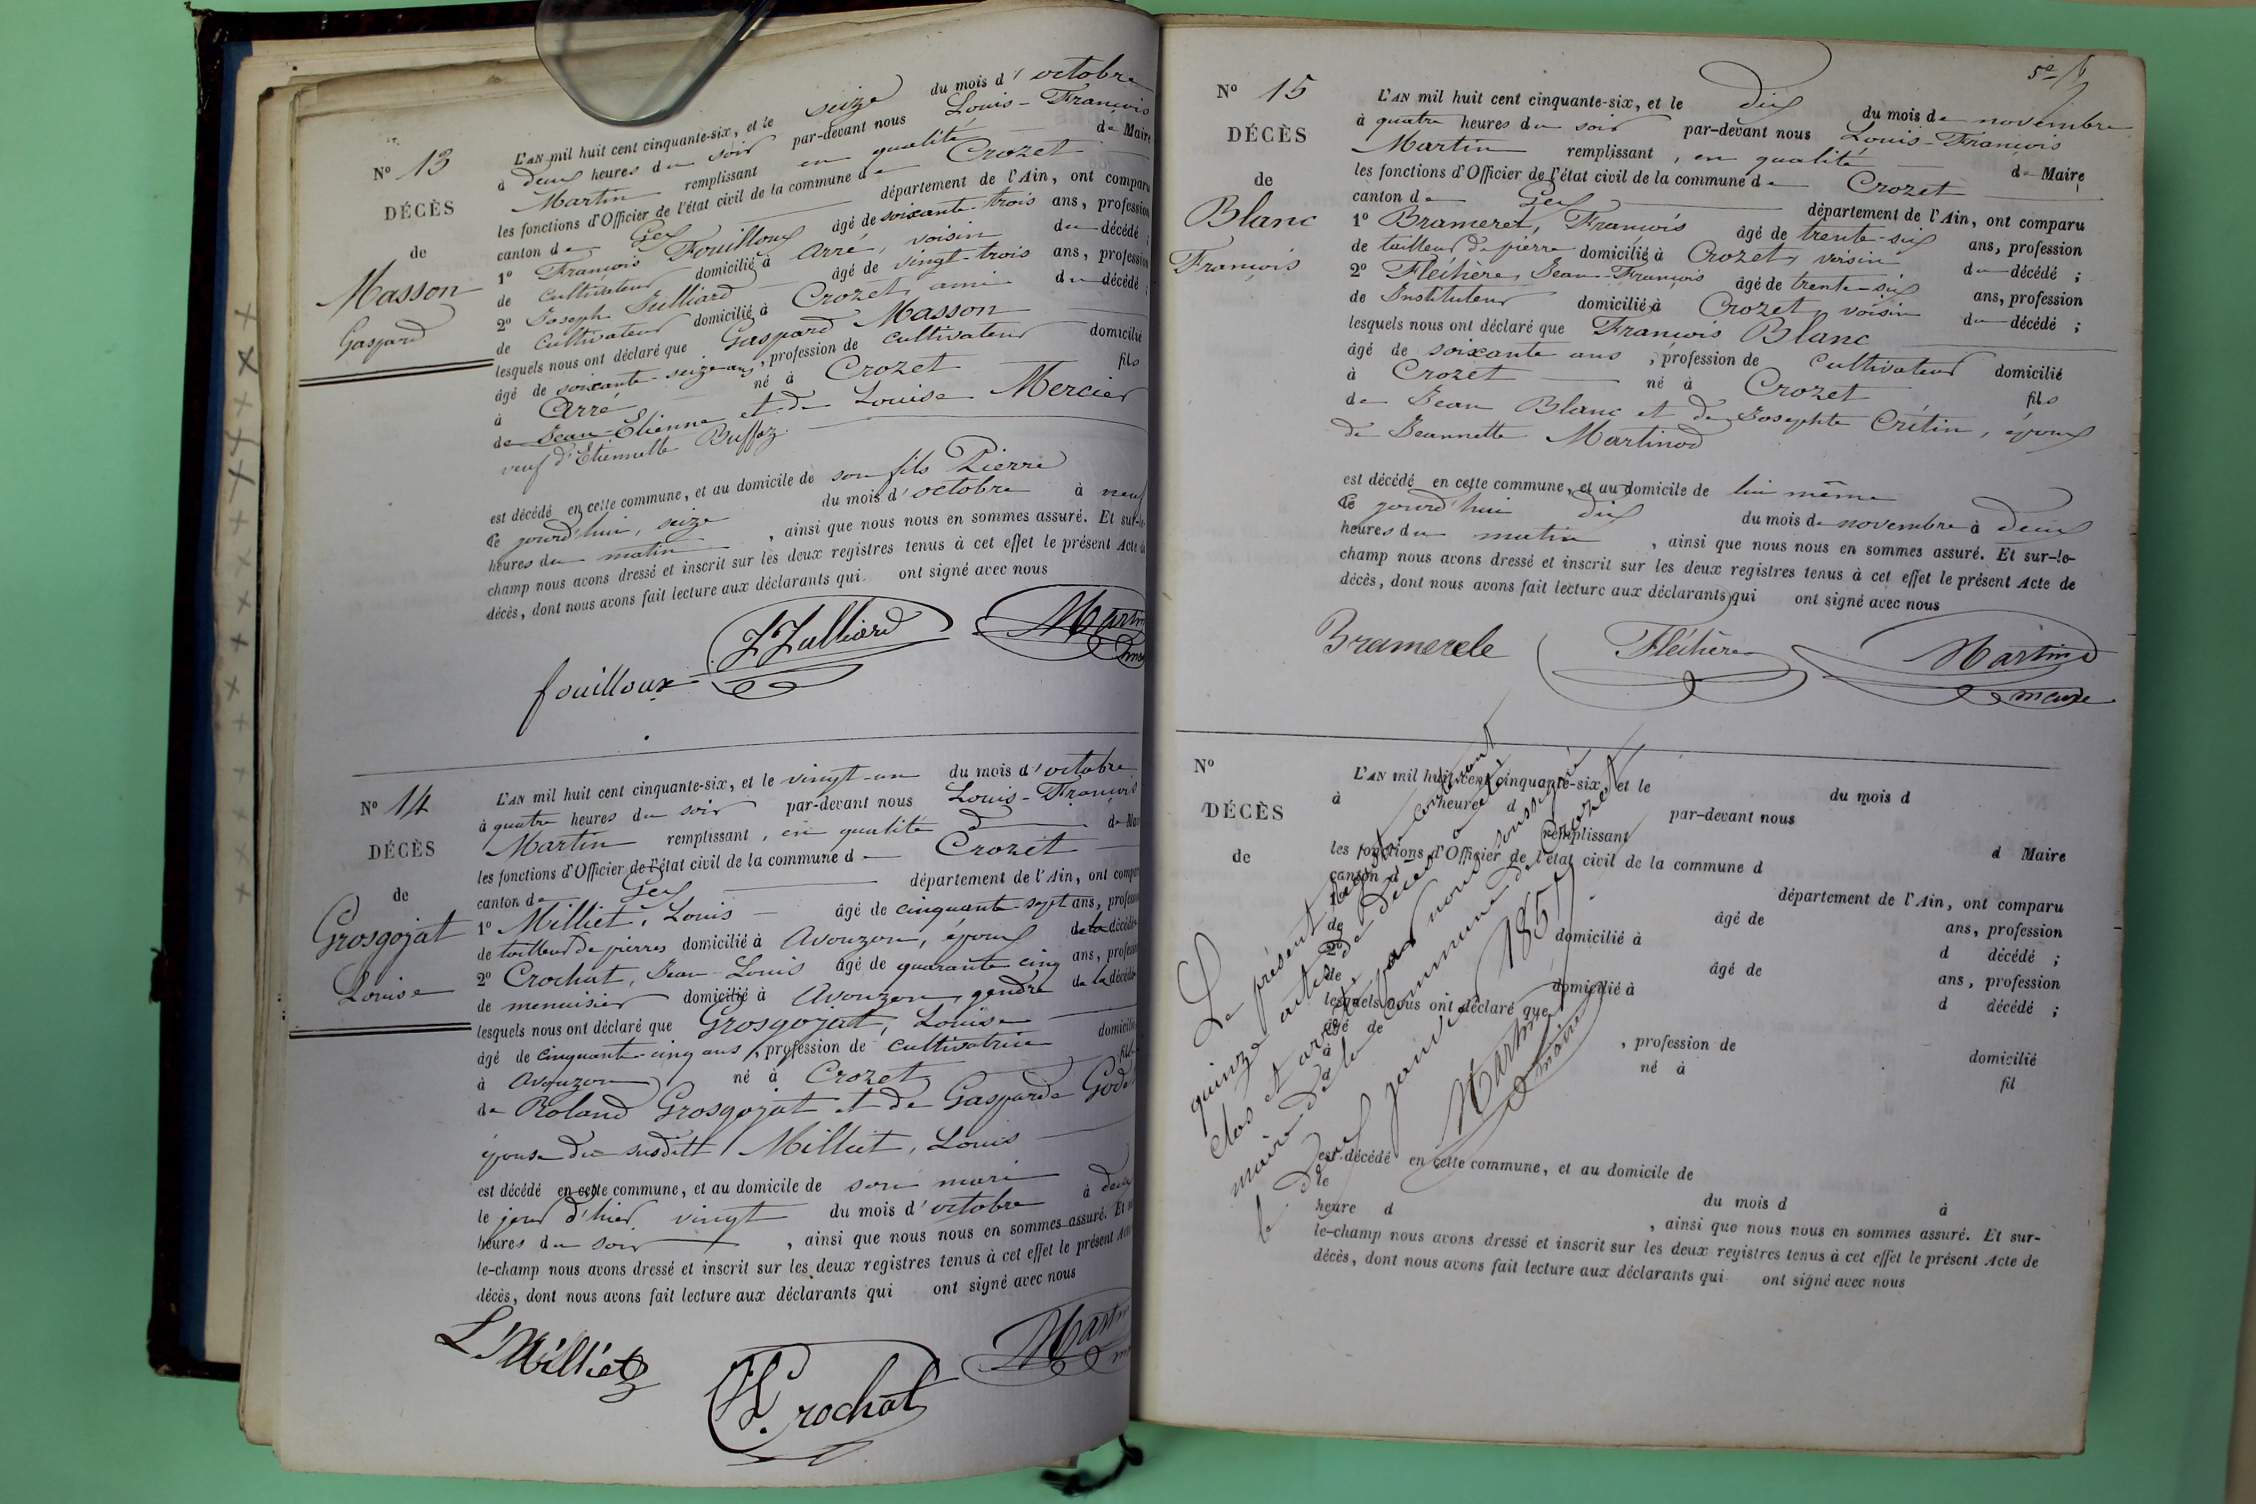 N° 13
DÉCÈS
de
Masson
Gaspard
L'AN mil huit cent cinquante-six, et le seize du mois d'octobre
à deux heures du soir par-devant nous Louis-François
Martin remplissant en qualité de Maire
les fonctions d'Officier de l'état civil de la commune de Crozet
canton de Gex département de l'Ain, ont comparu
1° François Fouilloux âgé de soixante-trois ans, profession
de cultivateur domicilié à Arré, voisin du décédé ;
2° Joseph Julliard âgé de vingt-trois ans, profession
de cultivateur domicilié à Crozet, ami du décédé ;
lesquels nous ont déclaré que Gaspard Masson
âgé de soixante-seize ans, profession de cultivateur domicilié
à Arré né à Crozet fils
de Jean-Etienne et de Louise Mercier
veuf d'Etiennette Buffaz.
est décédé en cette commune, et au domicile de son fils Pierre
ce jourd'hui, seize du mois d'octobre à neuf
heures du matin, ainsi que nous nous en sommes assuré. Et sur-le-
champ nous avons dressé et inscrit sur les deux registres tenus à cet effet le présent Acte de
décès, dont nous avons fait lecture aux déclarants qui ont signé avec nous
fouilloux J Julliard Martin
N° 14
DÉCÈS
de
Grosgojat
Louise
L'AN mil huit cent cinquante-six, et le vingt-un du mois d'octobre
à quatre heures du soir par-devant nous Louis-François
Martin remplissant, en qualité d de Mai
les fonctions d'Officier de l'état civil de la commune d Crozet
canton de Gex département de l'Ain, ont compar
1° Milliet, Louis âgé de cinquante-sept ans, profess
de tailleur de pierres domicilié à Avouzon, époux de la décédée
2° Crochat, Jean-Louis âgé de quarante cinq ans, profess
de menuisier domicilié à Avouzon, gendre de la décédée
lesquels nous ont déclaré que Grosgojat, Louise
âgé de cinquante-cinq ans, profession de cultivatrice domicilié
à Avouzon né à Crozet fille
de Roland Grosgojat et de Gasparde Godet
épouse du susdit Milliet, Louis
est décédé en cette commune, et au domicile de son mari
le jour d'hier vingt du mois d'octobre à deux
heures du soir, ainsi que nous nous en sommes assuré. Et sur
le-champ nous avons dressé et inscrit sur les deux registres tenus à cet effet le présent Acte
décès, dont nous avons fait lecture aux déclarants qui ont signé avec nous
L Milliet JL Crochat Martin
N° 15
DÉCÈS
de
Blanc
François
L'AN mil huit cent cinquante-six, et le dix du mois de novembre
à quatre heures du soir par-devant nous Louis-François
Martin remplissant, en qualité de Maire
les fonctions d'Officier de l'état civil de la commune de Crozet
canton de Gex département de l'Ain, ont comparu
1° Brameret, François âgé de trente-six ans, profession
de tailleur de pierre domicilié à Crozet, voisin du décédé ;
2° Fléchère, Jean-François âgé de trente-six ans, profession
de Instituteur domicilié à Crozet, voisin du décédé ;
lesquels nous ont déclaré que François Blanc
âgé de soixante ans, profession de cultivateur domicilié
à Crozet né à Crozet fils
de Jean Blanc et de Josephte Crétin, époux
de Jeannette Martinod
est décédé en cette commune, et au domicile de lui même
ce jourd'hui dix du mois de novembre à deux
heures du matin, ainsi que nous nous en sommes assuré. Et sur-le-
champ nous avons dressé et inscrit sur les deux registres tenus à cet effet le présent Acte de
décès, dont nous avons fait lecture aux déclarants qui ont signé avec nous
Fléchère Martin
maire
N°
DÉCÈS
de
L'AN mil huit cent cinquante-six, et le du mois d
à heure d par-devant nous
remplissant d Maire
les fonctions d'Officier de l'état civil de la commune d
canton d département de l'Ain, ont comparu
1° âgé de ans, profession
de domicilié à d décédé ;
2° âgé de ans, profession
de domicilié à d décédé ;
lesquels nous ont déclaré que
âgé de , profession de domicilié
à né à fil
de
est décédé en cette commune, et au domicile de
le du mois d à
heure d , ainsi que nous nous en sommes assuré. Et sur-
le-champ nous avons dressé et inscrit sur les deux registres tenus à cet effet le présent Acte de
décès, dont nous avons fait lecture aux déclarants qui ont signé avec nous
Le présent registre contenant
quinze actes de décès a été
clos et arrêté par nous soussigné
maire de la commune de Crozet
le deux janvier 1857
Martin
maire